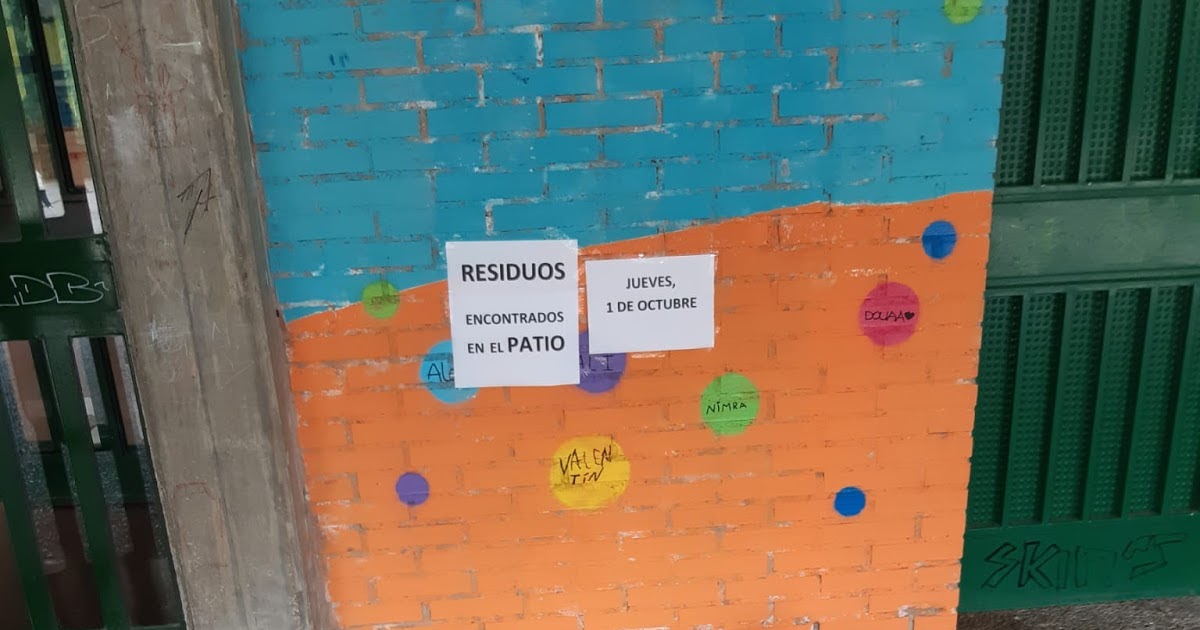 RESIDUOS
ENCONTRADOS
EN EL PATIO
JUEVES,
1 DE OCTUBRE
DOUAA
ALI
NIMRA
VALEN
TÍN
SKINS